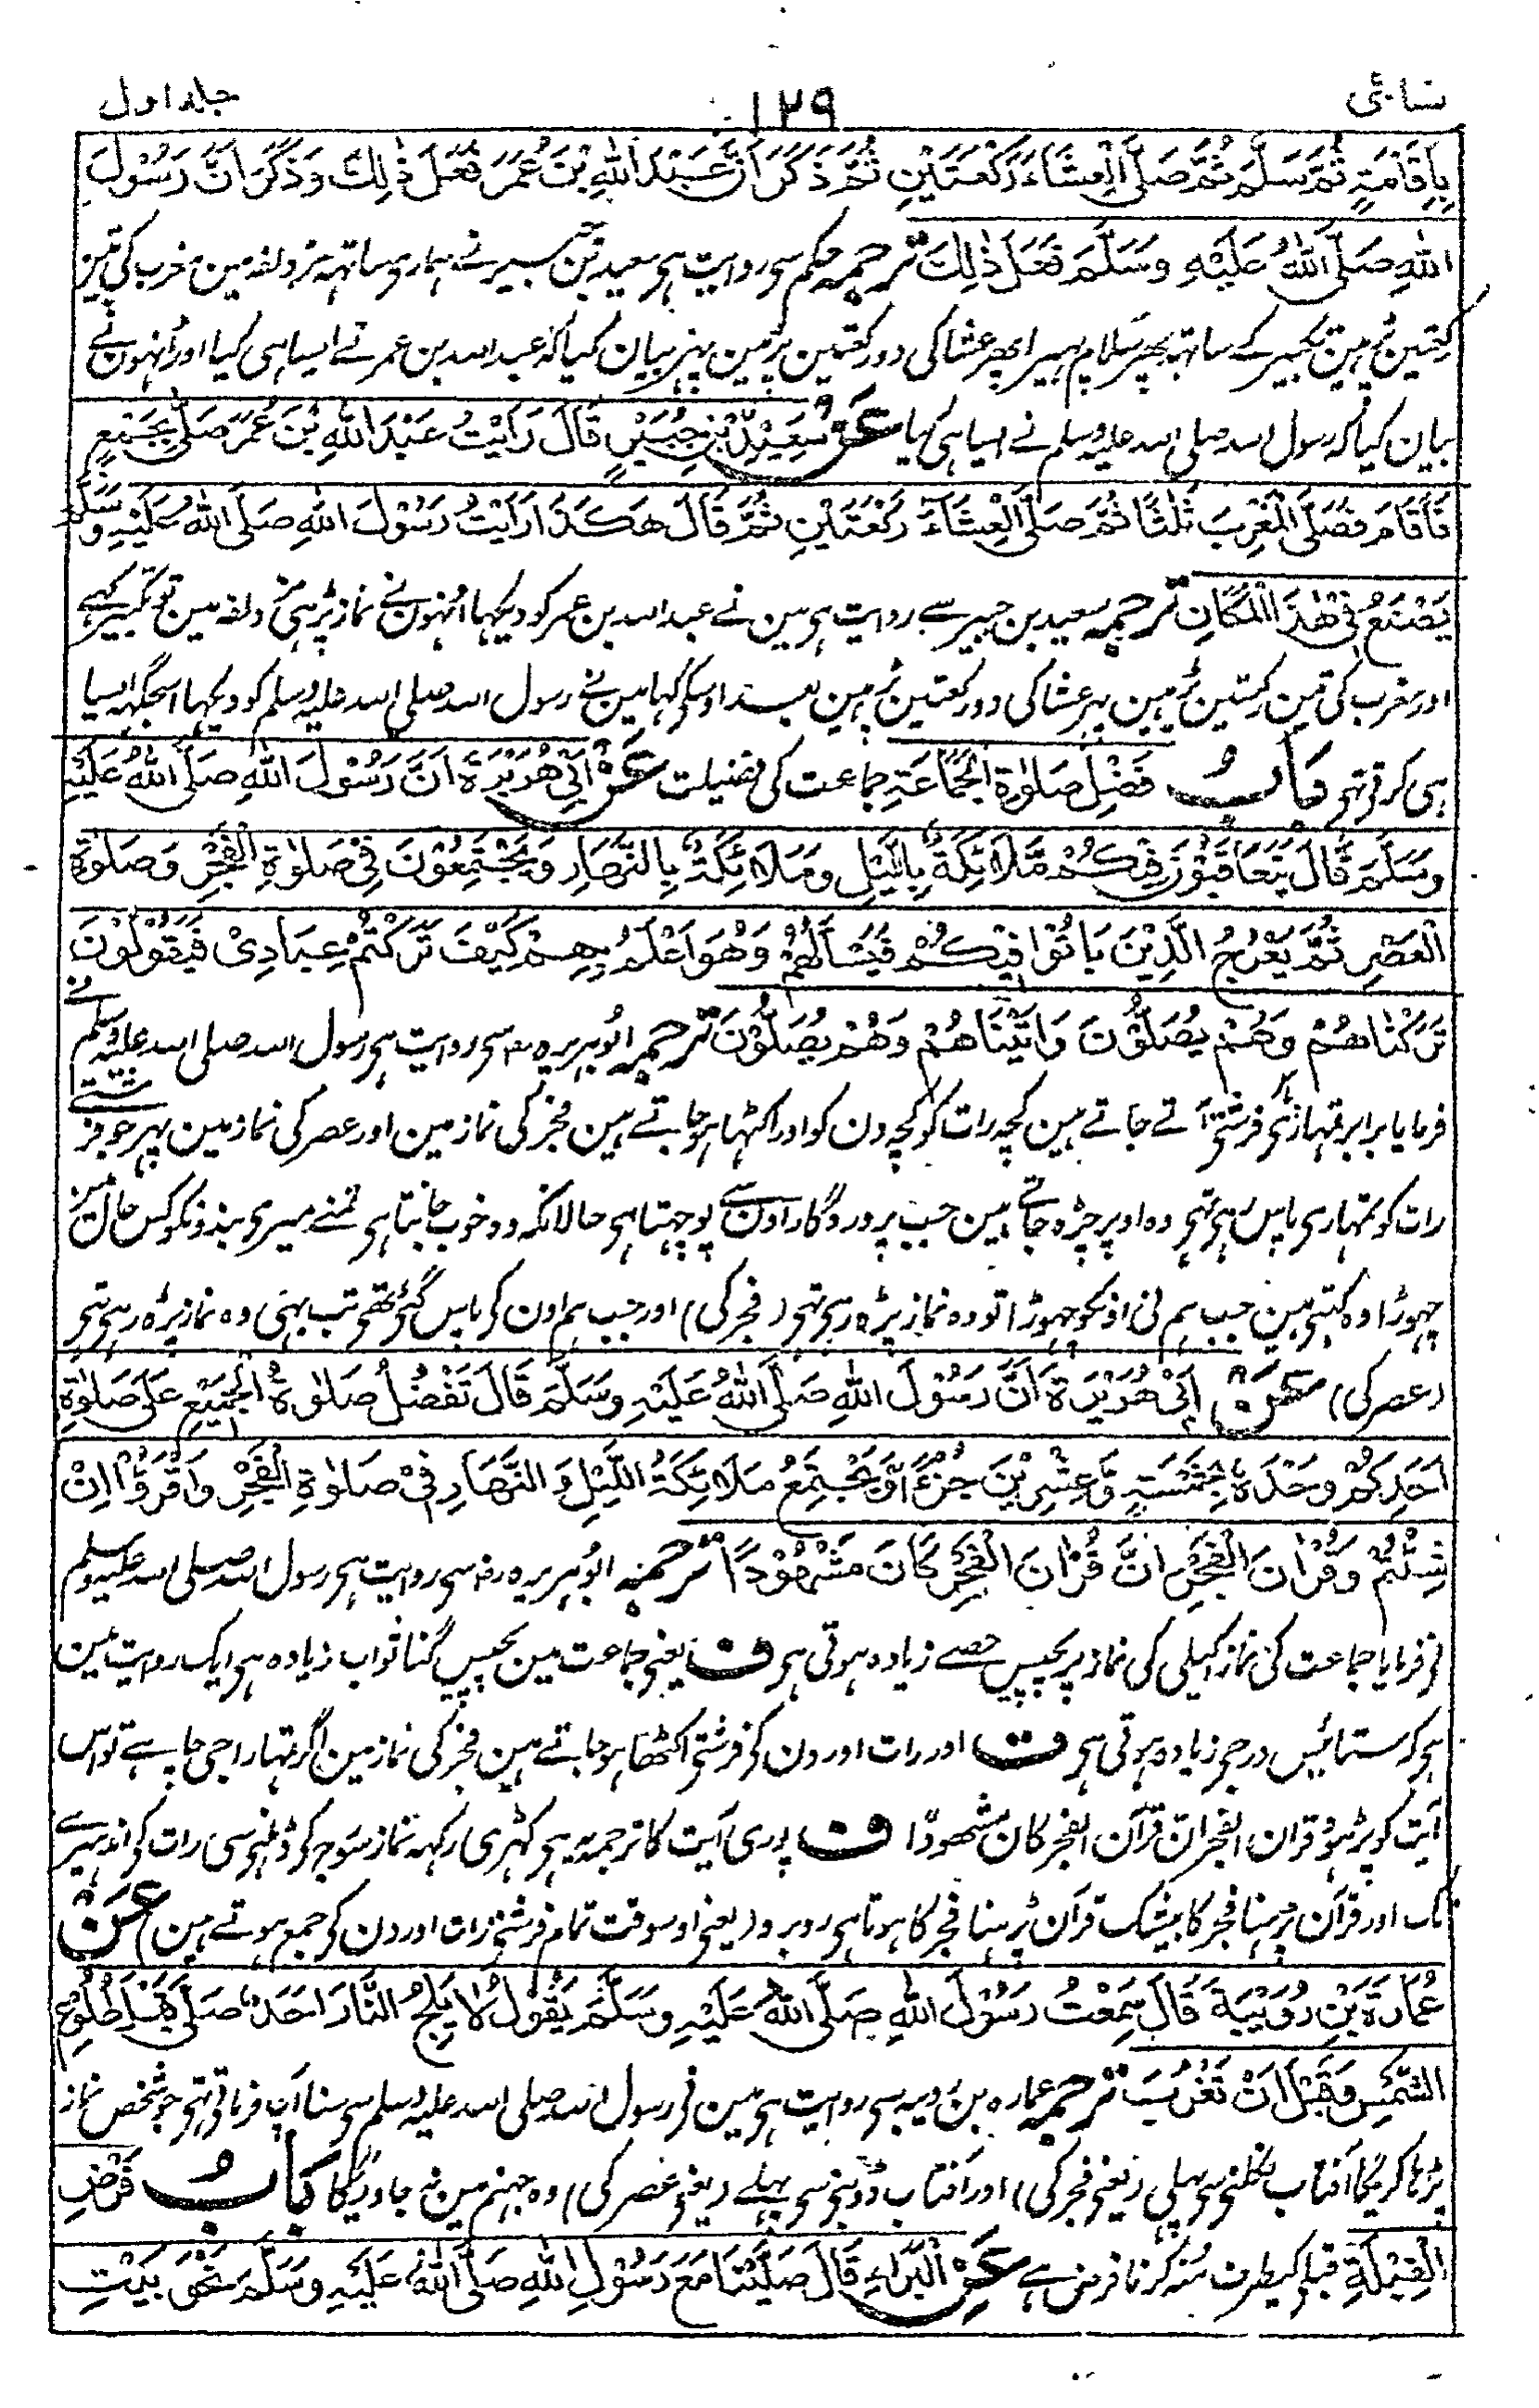 نسائی ١٢٩ جلد اول
بِاِقَامَةٍ ثُمَّ سَلَّمَ ثُمَّ صَلَّى الْعِشَاءَ رَكْعَتَيْنِ ثُمَّ ذَكَرَ اَنَّ عَبْدَ اللّٰهِ بْنَ عُمَرَ فَعَلَ ذٰلِكَ وَذَكَرَ اَنَّ رَسُوْلَ
اللّٰهِ صَلَّى اللّٰهُ عَلَيْهِ وَسَلَّمَ فَعَلَ ذٰلِكَ ترجمہ حکم سے روایت ہی سعید بن جبیر نے ہماری ساتہہ مزدلفہ مین مغرب کی تین
رکعتین پڑہین تکبیر کے ساتہہ پھر سلام پہیرا پھر عشا کی دو رکعتین پڑہین پہر بیان کیا کہ عبد اللہ بن عمر نے ایسا ہی کیا اور اُنہون نے
بیان کیا کہ رسول اللہ صلی اللہ علیہ وسلم نے ایسا ہی کیا عَنْ سَعِيْدِ بْنِ جُبَيْرٍ قَالَ رَاَيْتُ عَبْدَ اللّٰهِ بْنَ عُمَرَ صَلّٰى بِجَمْعٍ
فَاَقَامَ فَصَلَّى الْمَغْرِبَ ثَلٰثًا ثُمَّ صَلَّى الْعِشَاءَ رَكْعَتَيْنِ ثُمَّ قَالَ هٰكَذَا رَاَيْتُ رَسُوْلَ اللّٰهِ صَلَّى اللّٰهُ عَلَيْهِ وَسَلَّمَ
يَصْنَعُ فِىْ هٰذَا الْمَكَانِ ترجمہ سعید بن جبیر سے روایت ہی مین نے عبد اللہ بن عمر کو دیکہا اُنہون نے نماز پڑہی مزدلفہ مین تو تکبیر کہے
اور مغرب کی تین رکعتین پڑہین پہر عشا کی دو رکعتین پڑہین بعد اوسکے کہا مین نے رسول اللہ صلی اللہ علیہ وسلم کو دیکہا اسجگہ ایسا
ہی کرتے تہے بَابُ فَضْلِ صَلٰوةِ الْجَمَاعَةِ جماعت کی فضیلت عَنْ اَبِىْ هُرَيْرَةَ اَنَّ رَسُوْلَ اللّٰهِ صَلَّى اللّٰهُ عَلَيْهِ
وَسَلَّمَ قَالَ يَتَعَاقَبُوْنَ فِيْكُمْ مَلَائِكَةٌ بِاللَّيْلِ وَمَلَائِكَةٌ بِالنَّهَارِ وَيَجْتَمِعُوْنَ فِىْ صَلٰوةِ الْفَجْرِ وَصَلٰوةِ
الْعَصْرِ ثُمَّ يَعْرُجُ الَّذِيْنَ بَاتُوْا فِيْكُمْ فَيَسْاَلُهُمْ وَهُوَ اَعْلَمُ بِهِمْ كَيْفَ تَرَكْتُمْ عِبَادِىْ فَيَقُوْلُوْنَ
تَرَكْنَاهُمْ وَهُمْ يُصَلُّوْنَ وَاَتَيْنَاهُمْ وَهُمْ يُصَلُّوْنَ ترجمہ ابو ہریرہ رضہ سے روایت ہی رسول اللہ صلی اللہ علیہ وسلم نے
فرمایا برابر تمہاری فرشتے آتے جاتے ہین کچہ رات کو کچہ دن کو اور اکٹہا ہو جاتے ہین فجر کی نماز مین اور عصر کی نماز مین پہر جو فرشتے
رات کو تمہاری پاس رہی تہے وہ اوپر چڑہ جاتے ہین جب پروردگار اون سے پوچہتا ہی حالانکہ وہ خوب جانتا ہی تمنے میری بندونکو کس حال مین
چہوڑا وہ کہتے ہین جب ہم نی اونکو چہوڑا تو وہ نماز پڑہ رہی تہے (فجر کی) اور جب ہم اون کے پاس گئے تھے تب بہی وہ نماز پڑہ رہی تہے
(عصر کی) عَنْ اَبِىْ هُرَيْرَةَ اَنَّ رَسُوْلَ اللّٰهِ صَلَّى اللّٰهُ عَلَيْهِ وَسَلَّمَ قَالَ تَفْضُلُ صَلٰوةُ الْجَمِيْعِ عَلٰى صَلٰوةِ
اَحَدِكُمْ وَحْدَهٗ بِخَمْسَةٍ وَّعِشْرِيْنَ جُزْءًا وَّيَجْتَمِعُ مَلَائِكَةُ اللَّيْلِ وَالنَّهَارِ فِىْ صَلٰوةِ الْفَجْرِ وَاقْرَؤُا اِنْ
شِئْتُمْ وَقُرْاٰنَ الْفَجْرِ اِنَّ قُرْاٰنَ الْفَجْرِ كَانَ مَشْهُوْدًا ترجمہ ابو ہریرہ رضہ سے روایت ہی رسول اللہ صلی اللہ علیہ وسلم
نے فرمایا جماعت کی نماز اکیلی کی نماز پر پچیس حصے زیادہ ہوتی ہی ف یعنے جماعت مین پچیس گنا ثواب زیادہ ہی ایک روایت مین
ہی کہ ستائیس درجے زیادہ ہوتی ہی ف اور رات اور دن کے فرشتے اکٹھا ہو جاتے ہین فجر کی نماز مین اگر تمہارا جی چاہے تو اس
آیت کو پڑہو وقران الفجر ان قرآن الفجر کان مشھودًا ف پوری آیت کا ترجمہ یہ ہی کہڑی رکہہ نماز سورج کے ڈہلنے سی رات کے اندہیرے
تک اور قرآن پڑہنا فجر کا بیشک قرآن پڑہنا فجر کا ہوتا ہی روبرو (یعنے اوسوقت تمام فرشتے رات اور دن کے جمع ہوتے ہین) عَنْ
عُمَارَةَ بْنِ رُوَيْبَةَ قَالَ سَمِعْتُ رَسُوْلَ اللّٰهِ صَلَّى اللّٰهُ عَلَيْهِ وَسَلَّمَ يَقُوْلُ لَا يَلِجُ النَّارَ اَحَدٌ صَلّٰى قَبْلَ طُلُوْعِ
الشَّمْسِ وَقَبْلَ اَنْ تَغْرُبَ ترجمہ عمارہ بن رویبہ سے روایت ہی مین نے رسول اللہ صلی اللہ علیہ وسلم سے سنا آپ فرماتے تہے جو شخص نماز
پڑہا کریگا آفتاب نکلنے سے پہلی (یعنے فجر کی) اور آفتاب ڈوبنے سے پہلے (یعنے عصر کی) وہ جہنم مین نہ جاویگا بَابُ فَرْضِ
الْقِبْلَةِ قبلہ کیطرف منہ کرنا فرض ہے عَنِ الْبَرَاءِ قَالَ صَلَّيْنَا مَعَ رَسُوْلِ اللّٰهِ صَلَّى اللّٰهُ عَلَيْهِ وَسَلَّمَ نَحْوَ بَيْتِ